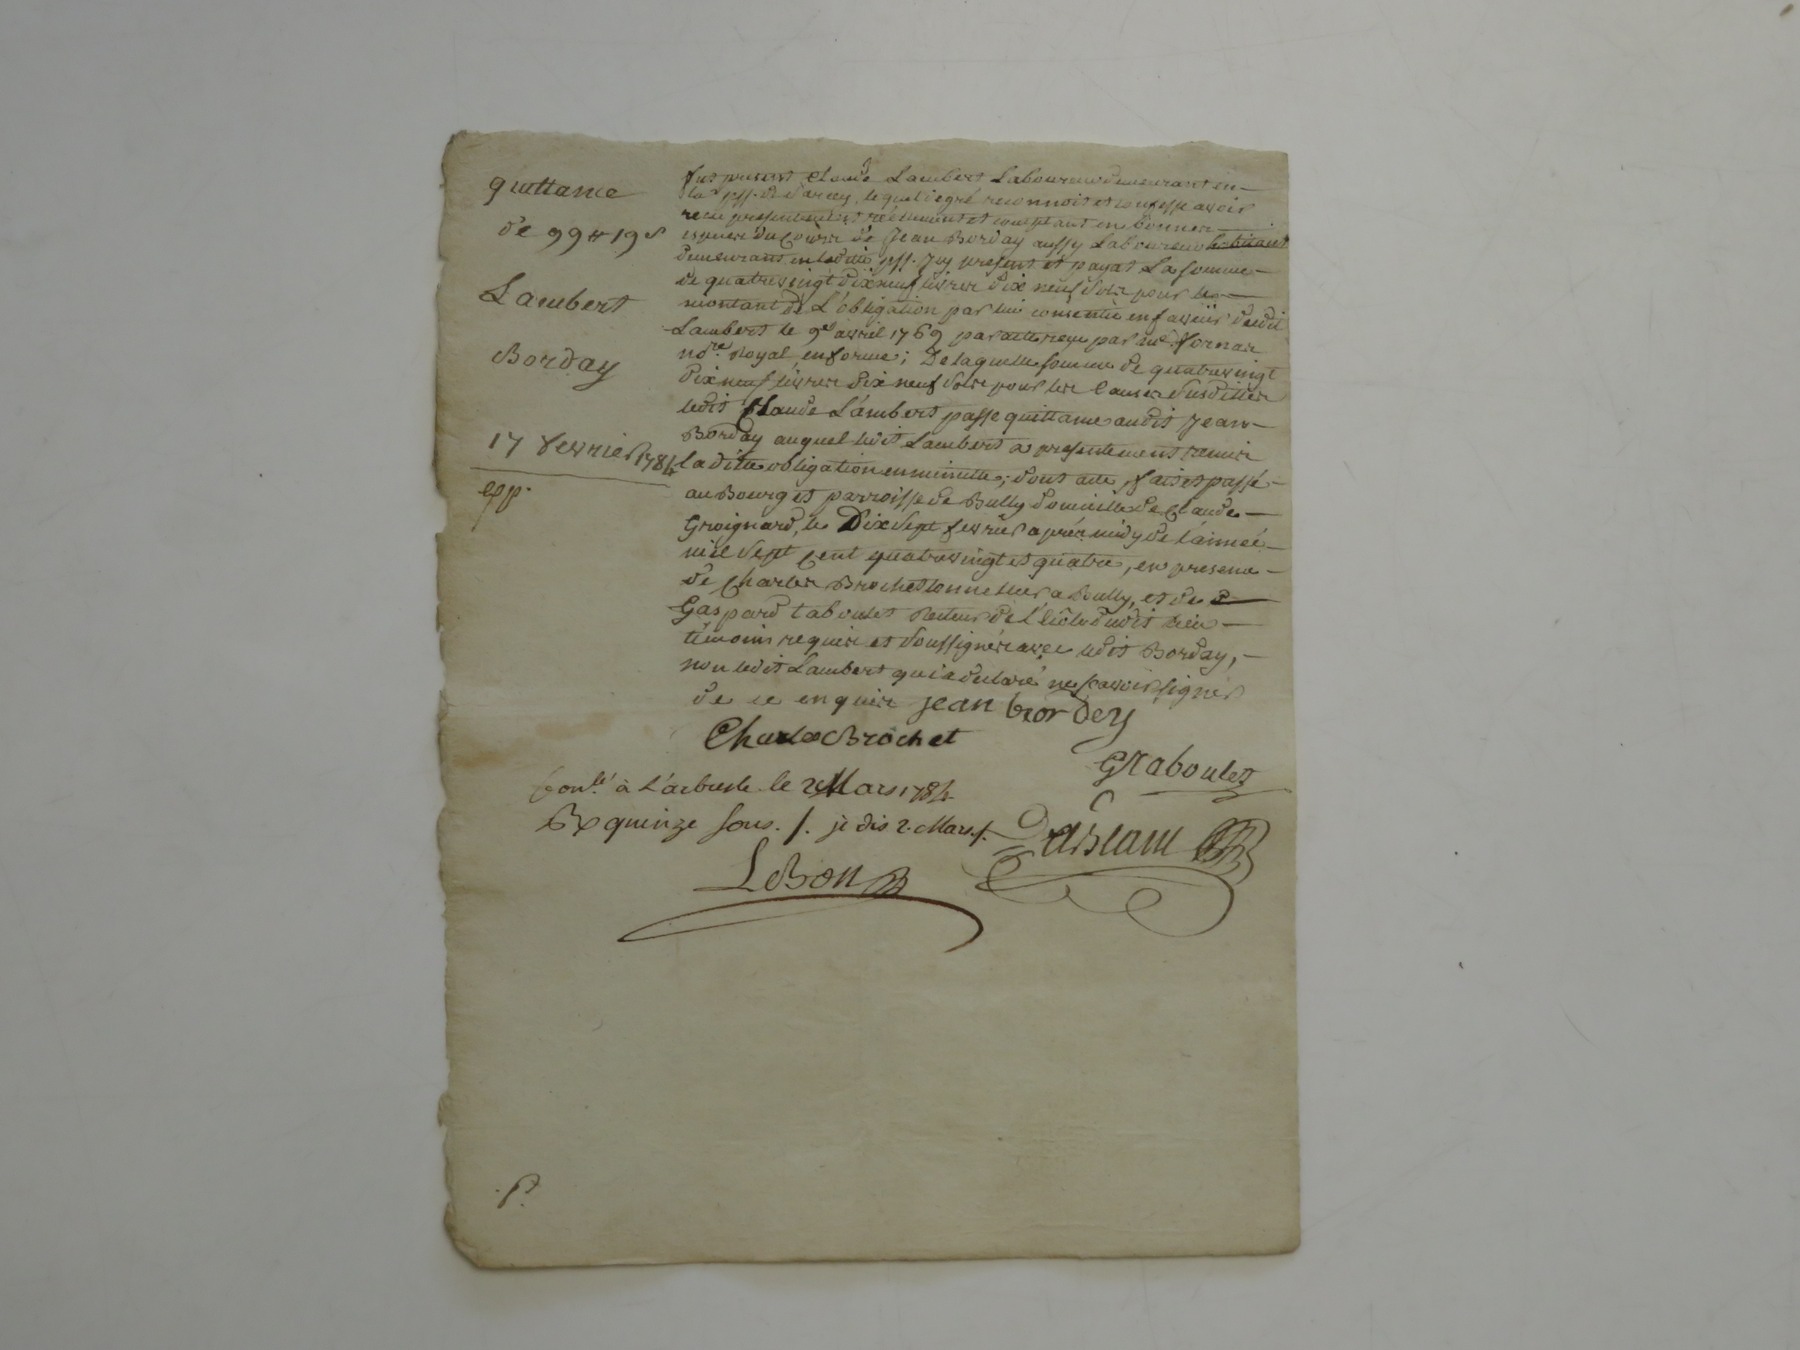 quittance
de 99 ₶ 19 s
Lambert
Borday
17 fevrier 1784
exp.
fut present Claude Lambert Laboureur demeurant en
la parr. de Sarcey, lequel de gré reconnoit et confesse avoir
recu presentement reellement et comptant en bonnes
especes du cours de Jean Borday aussy Laboureur habitant
demeurant en ladite parr. Icy present et payat La somme
de quatrevingt dix neuf livres dix neuf sols pour le
montant de L'obligation par lui consentie en faveur dudit
Lambert le 9e avril 1769 par acte recu par Me fornas
nore. Royal en forme; De laquelle somme de quatrevingt
dix neuf livres dix neuf sols pour les causes susdittes
ledit Claude Lambert passe quittance audit Jean
Borday auquel ledit Lambert a presentement remis
la ditte obligation en minutte; dont acte, fait et passé
au Bourg et parroisse de Bully domicille de Claude
Groignard, le Dix sept fevrier après midy de l'année
mil sept cent quatrevingt et quatre, en presence
de Charles Brochet tonnellier a Bully, et de
Gaspard taboulet Recteur de l'école dudit lieu
témoins requis et soussignés avec ledit Borday,
non ledit Lambert qui a declaré ne scavoir signer
de ce enquis jean bordey
Charles Brochet
GTaboulet
Conlé. à L'arbresle le 2 Mars 1784
Rx quinze sous. /. je dis 2. Mars /.
LeBon